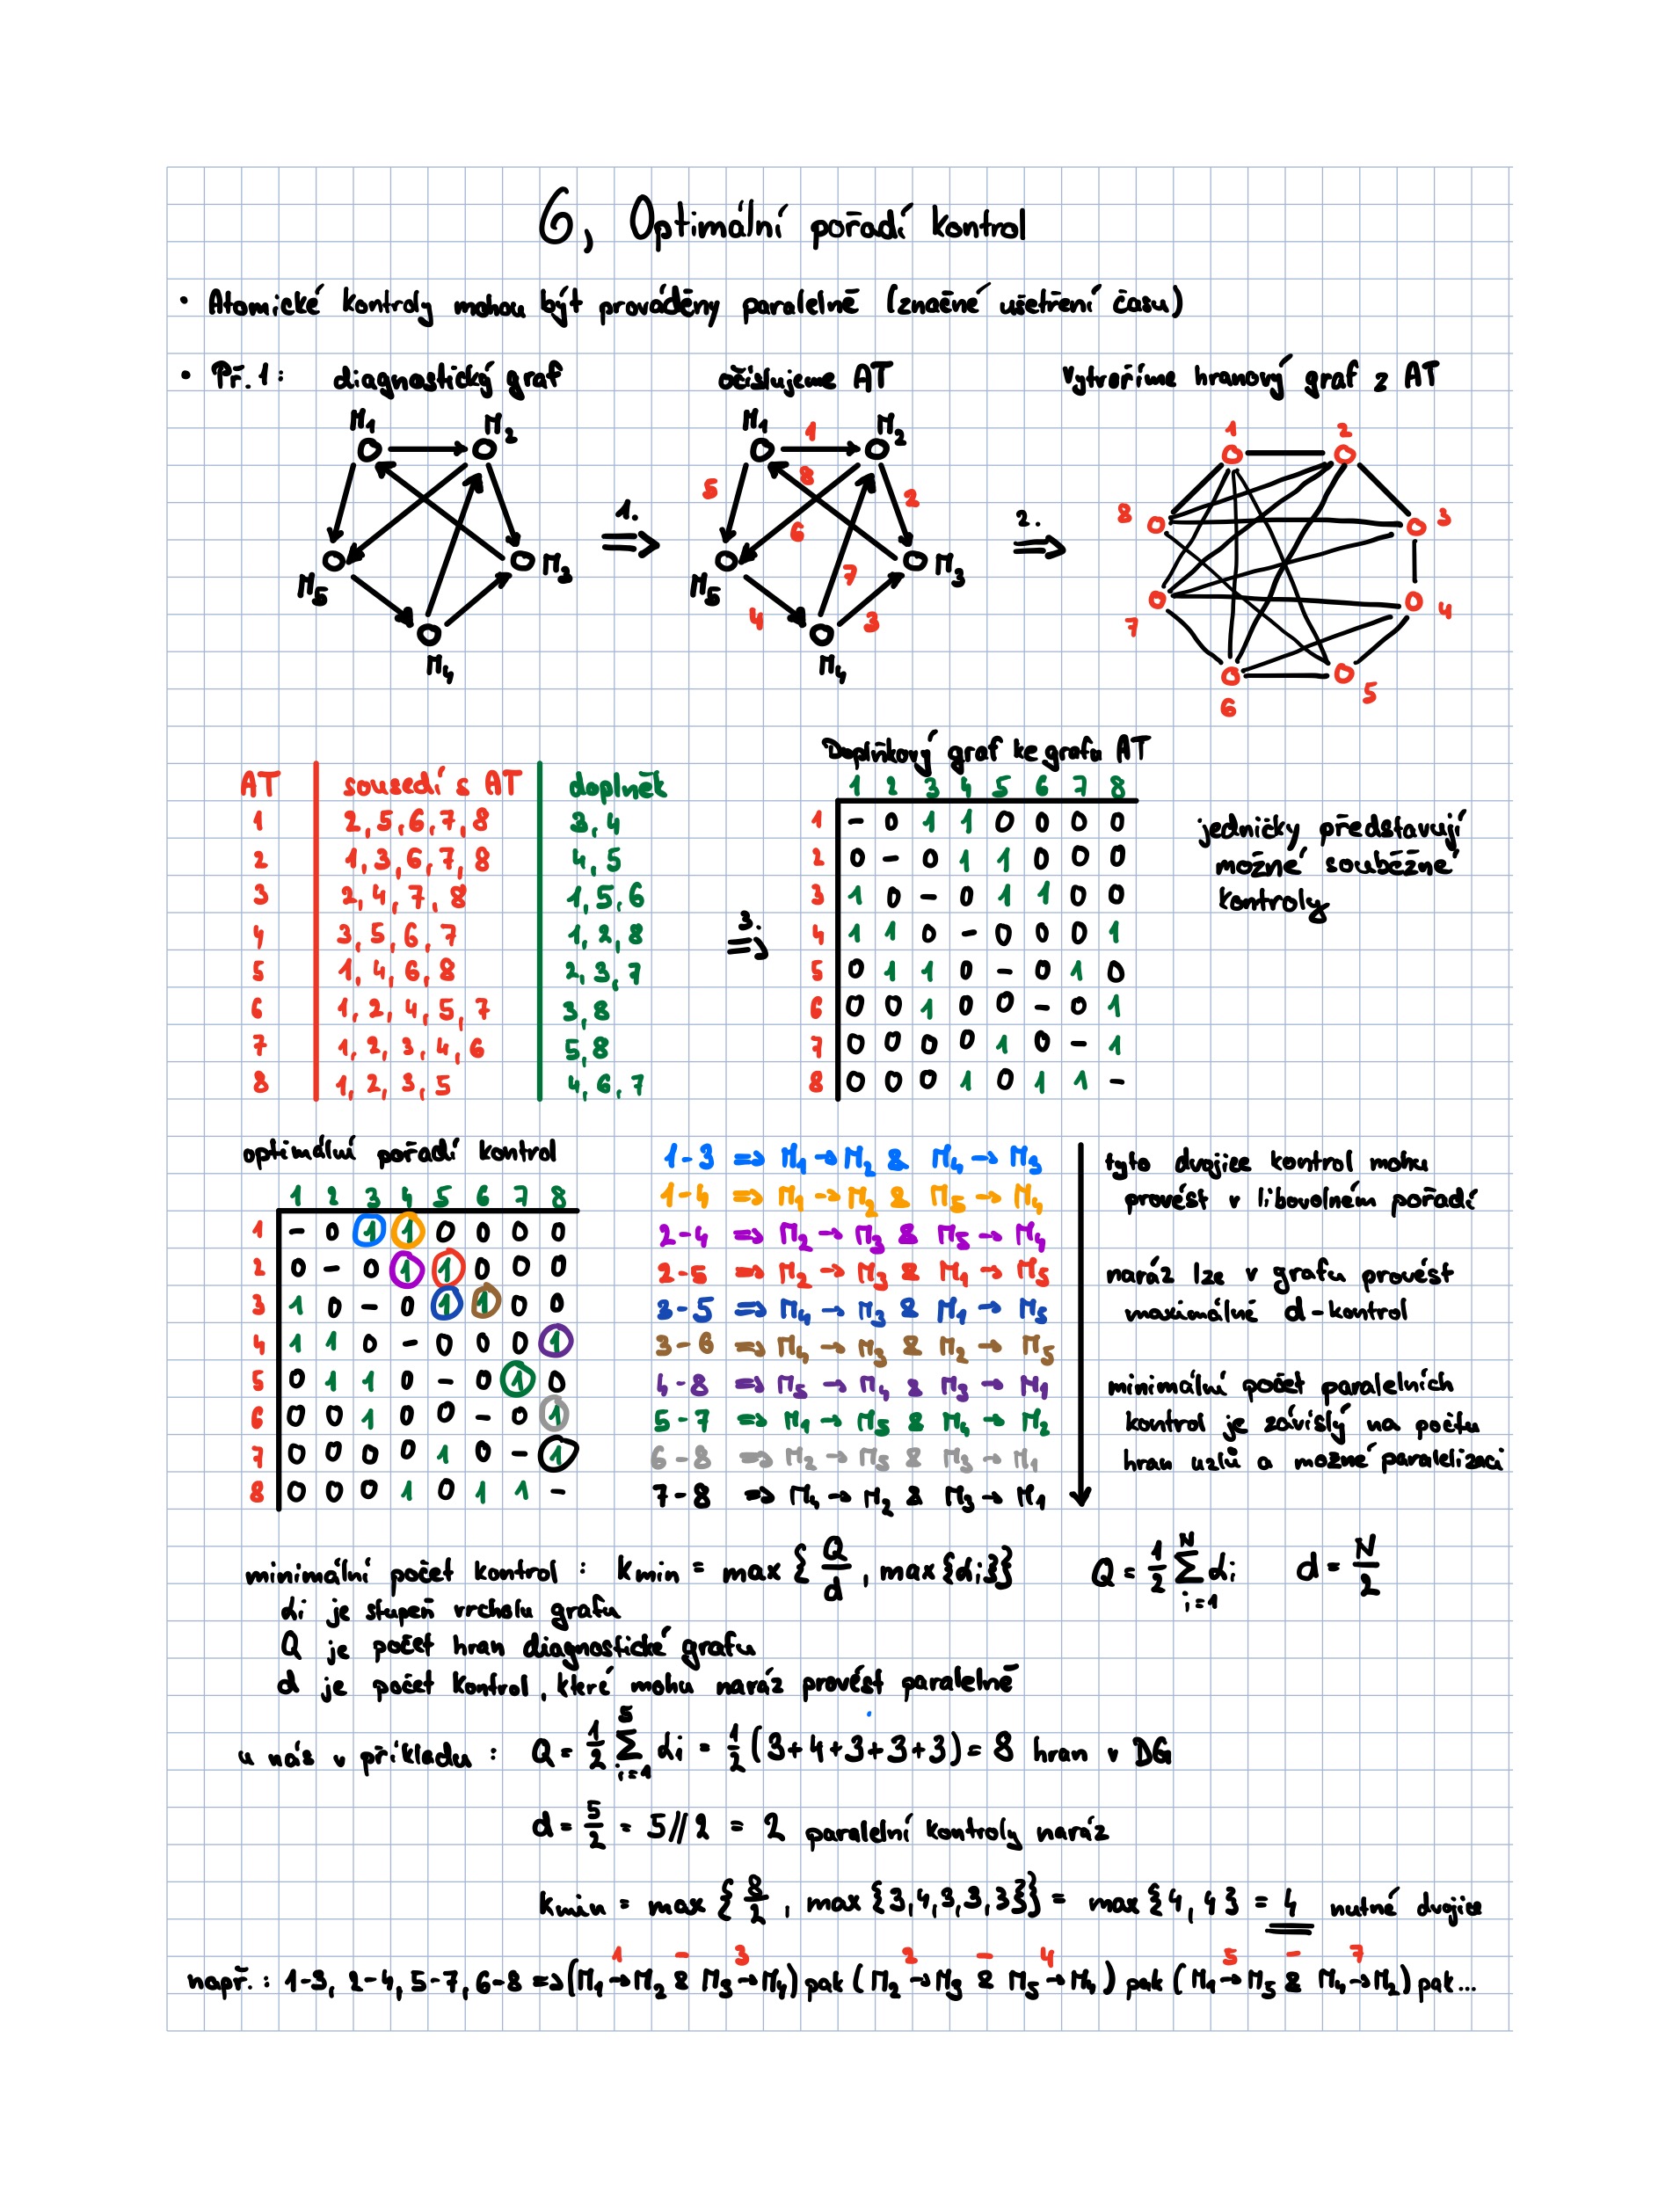 6, Optimální pořadí kontrol
• Atomické kontroly mohou být prováděny paralelně (značné ušetření času)
• Př. 1: diagnostický graf očíslujeme AT vytvoříme hranový graf z AT
M1 M2 M3 M4 M5
1.
M1 M2 M3 M4 M5 1 2 3 4 5 6 7 8
2.
1 2 3 4 5 6 7 8
Doplňkový graf ke grafu AT
AT sousedí s AT doplněk
1 2, 5, 6, 7, 8 3, 4
2 1, 3, 6, 7, 8 4, 5
3 2, 4, 7, 8 1, 5, 6
4 3, 5, 6, 7 1, 2, 8
5 1, 4, 6, 8 2, 3, 7
6 1, 2, 4, 5, 7 3, 8
7 1, 2, 3, 4, 6 5, 8
8 1, 2, 3, 5 4, 6, 7
3.
1 2 3 4 5 6 7 8
1 - 0 1 1 0 0 0 0
2 0 - 0 1 1 0 0 0
3 1 0 - 0 1 1 0 0
4 1 1 0 - 0 0 0 1
5 0 1 1 0 - 0 1 0
6 0 0 1 0 0 - 0 1
7 0 0 0 0 1 0 - 1
8 0 0 0 1 0 1 1 -
jedničky představují
možné souběžné
kontroly
optimální pořadí kontrol
1 2 3 4 5 6 7 8
1 - 0 1 1 0 0 0 0
2 0 - 0 1 1 0 0 0
3 1 0 - 0 1 1 0 0
4 1 1 0 - 0 0 0 1
5 0 1 1 0 - 0 1 0
6 0 0 1 0 0 - 0 1
7 0 0 0 0 1 0 - 1
8 0 0 0 1 0 1 1 -
1-3 => M1 → M2 & M4 → M3
1-4 => M1 → M2 & M5 → M4
2-4 => M2 → M3 & M5 → M4
2-5 => M2 → M3 & M1 → M5
3-5 => M4 → M3 & M1 → M5
3-6 => M4 → M3 & M2 → M5
4-8 => M5 → M4 & M3 → M1
5-7 => M1 → M5 & M4 → M2
6-8 => M2 → M5 & M3 → M1
7-8 => M4 → M2 & M3 → M1
tyto dvojice kontrol mohu
provést v libovolném pořadí
naráz lze v grafu provést
maximálně d-kontrol
minimální počet paralelních
kontrol je závislý na počtu
hran uzlů a možné paralelizaci
minimální počet kontrol : kmin = max { Q/d , max{di}} Q = 1/2 Σ i=1 N di d = N/2
di je stupeň vrcholu grafu
Q je počet hran diagnostické grafu
d je počet kontrol, které mohu naráz provést paralelně
u nás v příkladu : Q = 1/2 Σ i=1 5 di = 1/2 (3+4+3+3+3) = 8 hran v DG
d = 5/2 = 5//2 = 2 paralelní kontroly naráz
kmin = max { 8/2 , max {3,4,3,3,3}} = max {4, 4} = 4 nutné dvojice
1 - 3 2 - 4 5 - 7
např.: 1-3, 2-4, 5-7, 6-8 => (M1 → M2 & M3 → M4) pak (M2 → M3 & M5 → M4) pak (M1 → M5 & M4 → M2) pak...